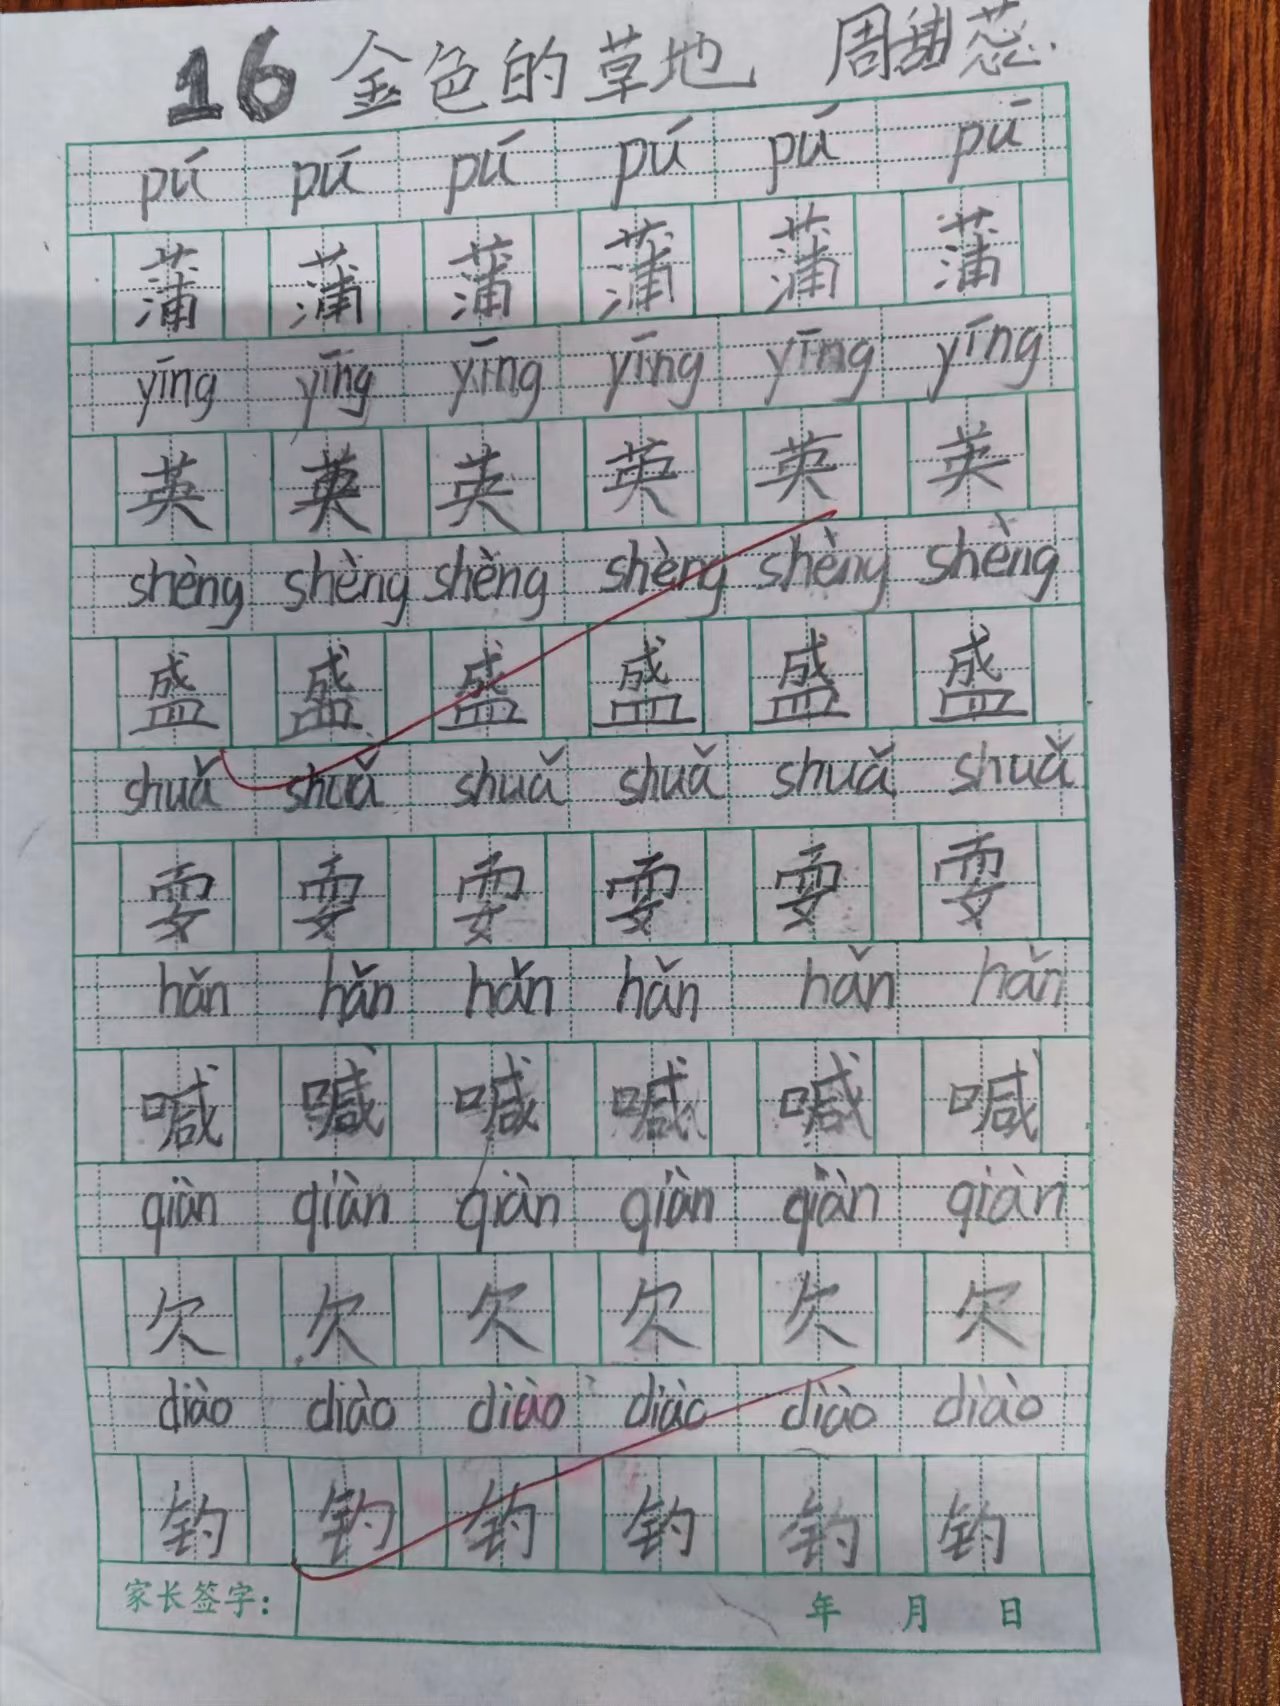 16 金色的草地 周甜蕊
pú pú pú pú pú pú
蒲 蒲 蒲 蒲 蒲 蒲
yīng yīng yīng yīng yīng yīng
英 英 英 英 英 英
shèng shèng shèng shèng shèng shèng
盛 盛 盛 盛 盛 盛
shuǎ shuǎ shuǎ shuǎ shuǎ shuǎ
耍 耍 耍 耍 耍 耍
hǎn hǎn hǎn hǎn hǎn hǎn
喊 喊 喊 喊 喊 喊
qiàn qiàn qiàn qiàn qiàn qiàn
欠 欠 欠 欠 欠 欠
diào diào diào diào diào diào
钓 钓 钓 钓 钓 钓
家长签字： 年 月 日